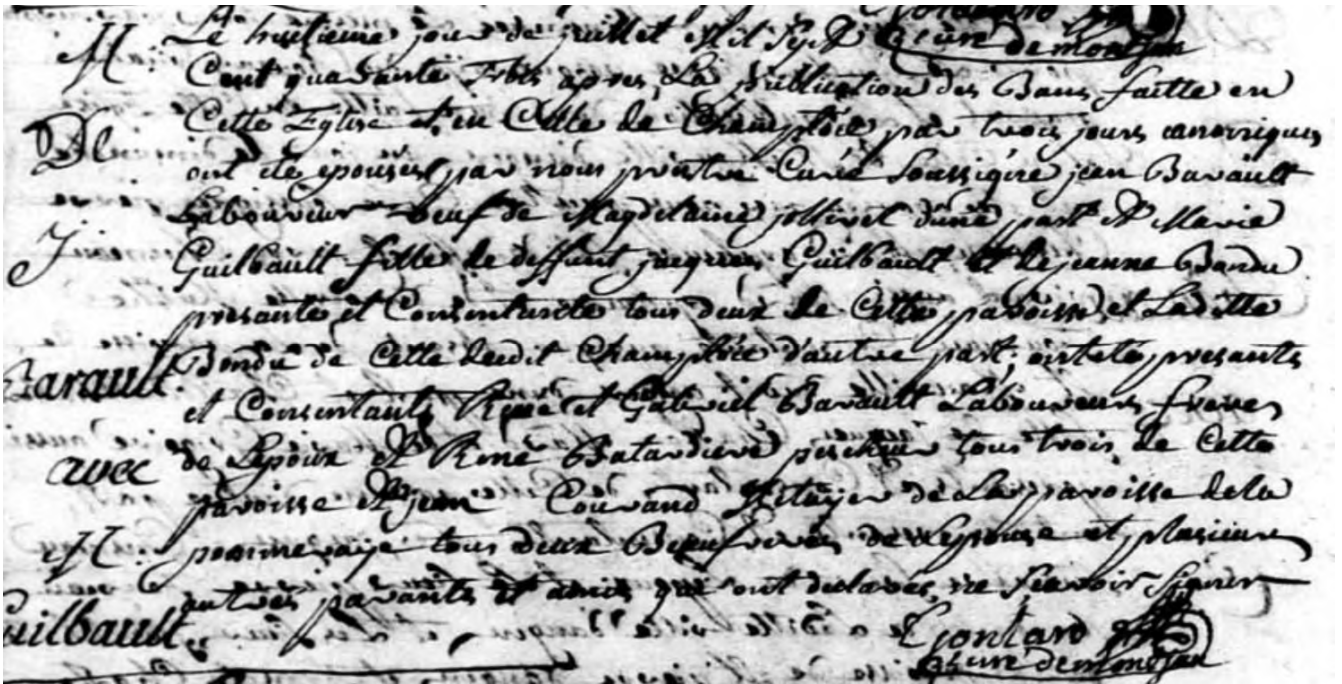 M.
De
J
Barault
avec
M.
Guilbault.
Le huitieme jour de juillet Mil Sept
Cent quarante Trois apres La publication des Bans faitte en
Cette Eglise et en Celle de Champtocé par trois jours canoniques
ont ete epousés par nous pretre Curé Soussigné jean Barault
Laboureur veuf de Magdelaine jollivet d'une part Et Marie
Guilbault fille de deffunt jacques Guilbault et de jeanne Bondu
presante et Consentante tous deux de Cette paroisse et Laditte
Bondu de Celle dudit Champtocé d'autre part; ont eté presants
et Consentants René et Gabriel Barault Laboureurs freres
de Lepoux Et René Batardiere pescheur tous trois de Cette
paroisse Et jean Courand Metayer de La paroisse de la
pommeraye tous deux Beaufreres de Lepouse et plusieurs
autres parants et amis qui ont declarés ne Sçavoir Signer
Gontard
Curé de montjan